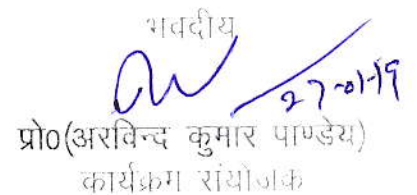 भवदीय
27-01-19
प्रो०(अरविन्द कुमार पाण्डेय)
कार्यक्रम संयोजक